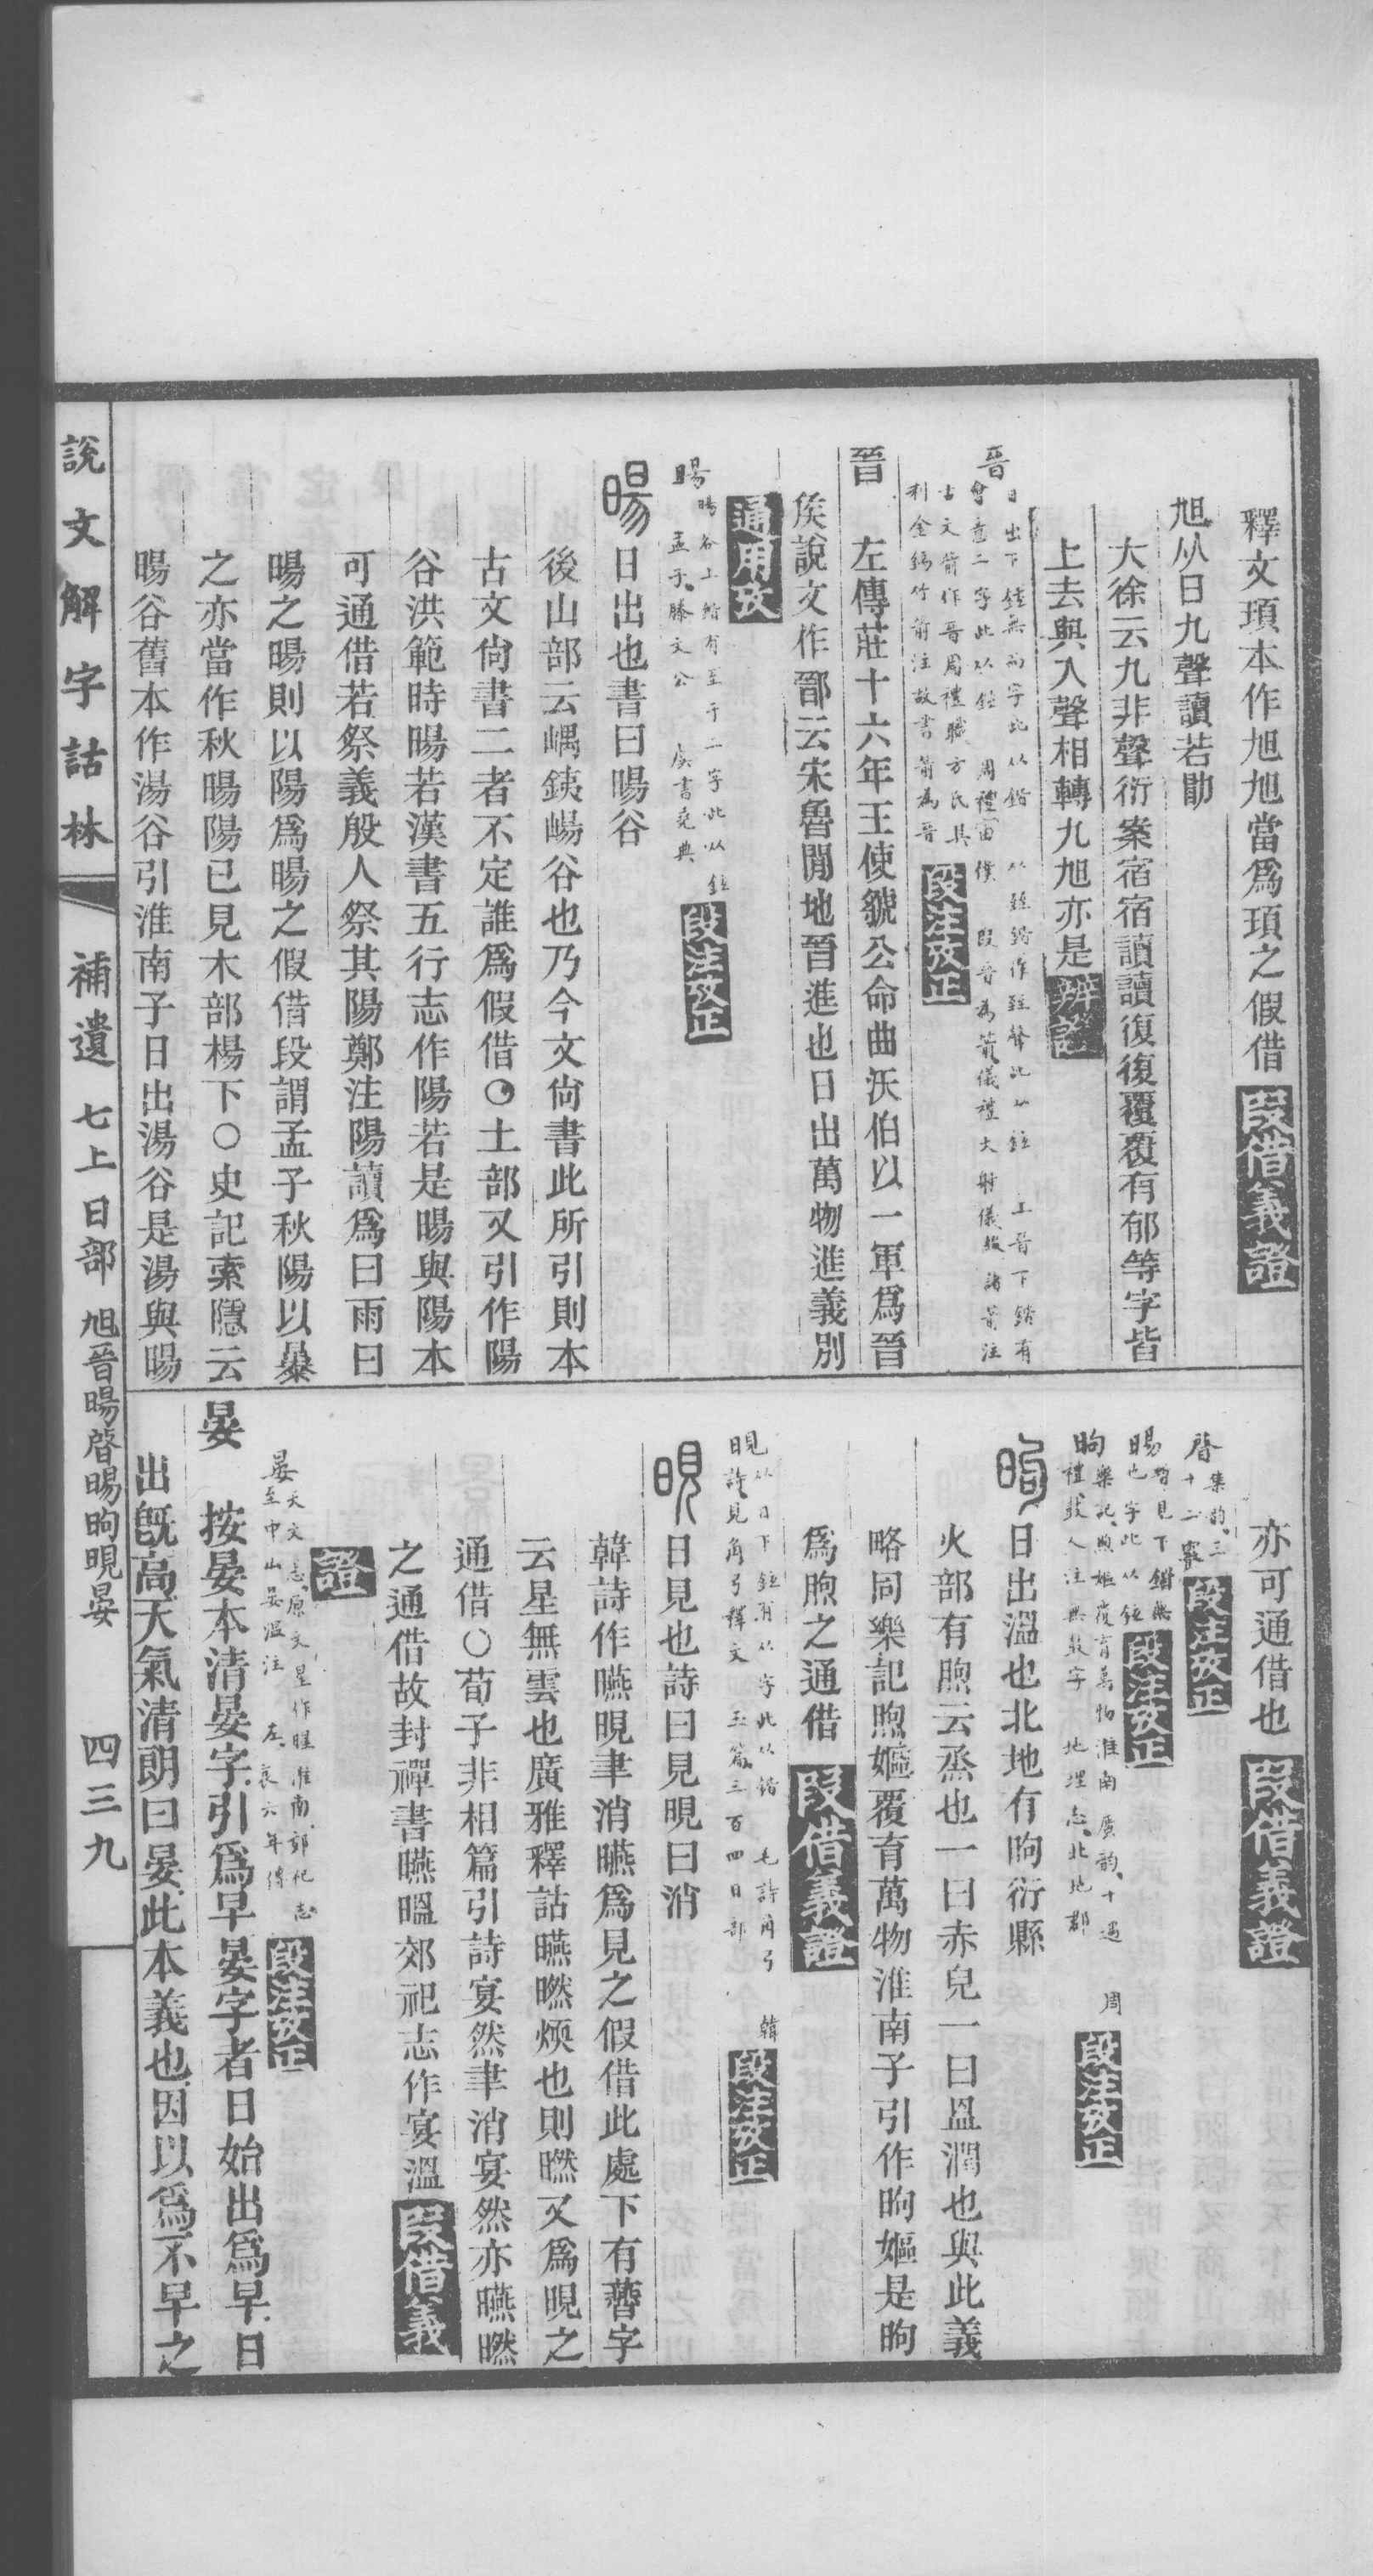 釋文頊本作旭旭當爲頊之假借 叚借義證
旭从日九聲讀若勖
大徐云九非聲衍案宿宿讀讀復復覆覆有郁等字皆
上去與入聲相轉九旭亦是 辨證
晉 日出下鉉無而字此从鍇 从臸鍇作臸聲此从鉉 上晉下鍇有
會意二字此从鉉 周禮田僕 段晉為箭儀禮大射儀綴諸箭注
古文箭作晉周禮職方氏其
利金錫竹箭注故書箭為晉 段注攷正
晉 左傳莊十六年王使虢公命曲沃伯以一軍爲晉
侯說文作鄑云宋魯閒地晉進也日出萬物進義別
通用攷
暘 暘谷上鍇有至于二字此从鉉
孟子滕文公 虞書堯典 段注攷正
暘 日出也書曰暘谷
後山部云嵎銕崵谷也乃今文尙書此所引則本
古文尙書二者不定誰爲假借○土部又引作陽
谷洪範時暘若漢書五行志作陽若是暘與陽本
可通借若祭義殷人祭其陽鄭注陽讀爲曰雨曰
暘之暘則以陽爲暘之假借段謂孟子秋陽以暴
之亦當作秋暘陽已見木部楊下○史記索隱云
暘谷舊本作湯谷引淮南子日出湯谷是湯與暘
亦可通借也 叚借義證
晵 集韵、三
十二霽 段注攷正
晹 暫見下鍇無
也字此从鉉 段注攷正
昫 樂記、煦嫗覆育萬物淮南 廣韵、十遇 周
禮、鼓人注無鼓字 地理志、北地郡 段注攷正
昫 日出溫也北地有昫衍縣
火部有煦云烝也一曰赤皃一曰𥁕潤也與此義
略同樂記煦嫗覆育萬物淮南子引作昫嫗是昫
爲煦之通借 叚借義證
晛 从日下鉉有从字此从鍇 毛詩角弓 韓
詩見角弓釋文 玉篇三百四日部 段注攷正
晛 日見也詩曰見晛曰消
韓詩作曣晛聿消曣爲見之假借此處下有㬫字
云星無雲也廣雅釋詁曣㬗煗也則㬗又爲晛之
通借○荀子非相篇引詩宴然聿消宴然亦曣㬗
之通借故封禪書曣㬈郊祀志作宴溫 叚借義
證
晏 天文志、原文星作暒淮南、郊祀志
至中山晏溫注 左、哀六年傳 段注攷正
晏 按晏本清晏字引爲早晏字者日始出爲早日
出旣高天氣清朗曰晏此本義也因以爲不早之
說文解字詁林 補遺 七上日部 旭晉暘晵晹昫晛晏 四三九